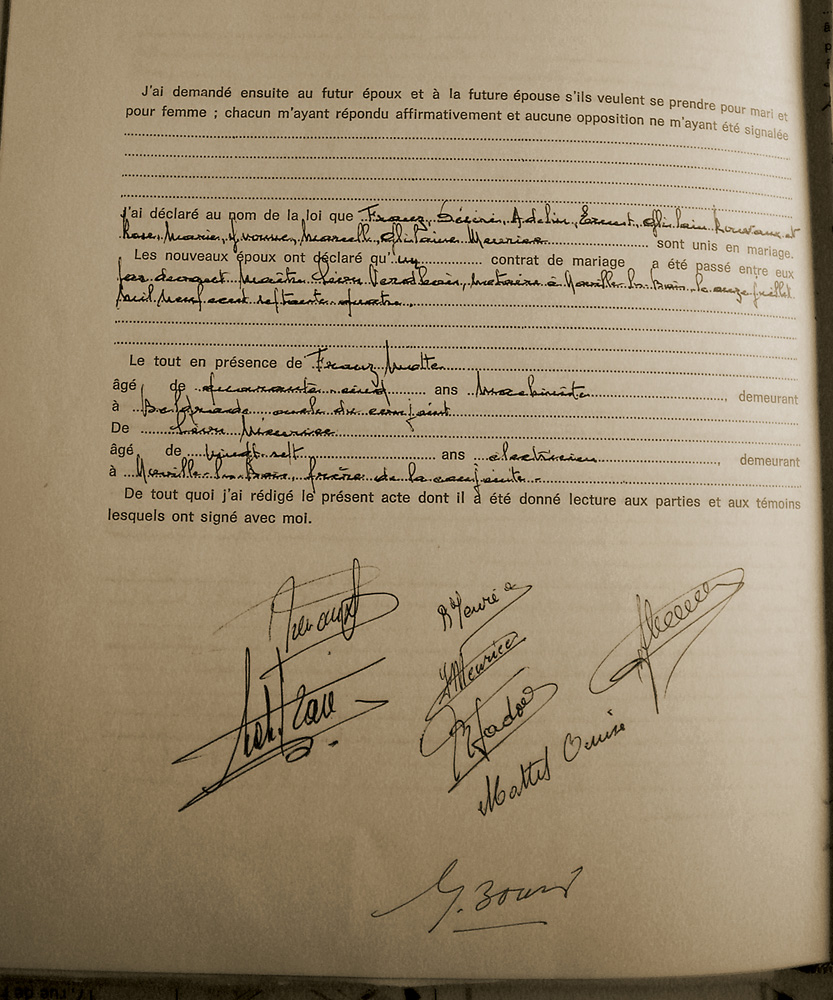 J'ai demandé ensuite au futur époux et à la future épouse s'ils veulent se prendre pour mari et
pour femme ; chacun m'ayant répondu affirmativement et aucune opposition ne m'ayant été signalée
J'ai déclaré au nom de la loi que Franz, Désiré, Adelin, Ernest, Ghislain et
Rose, Marie, Yvonne, Marcelle, Ghislaine Meurice sont unis en mariage.
Les nouveaux époux ont déclaré qu'un contrat de mariage a été passé entre eux
par devant Maître notaire à le onze juillet
mil neuf cent septante quatre.
Le tout en présence de Franz Mottet
âgé de quarante cinq ans machiniste, demeurant
à Belgrade oncle du conjoint
De Léon Meurice
âgé de vingt sept ans électricien, demeurant
à frère de la conjointe.
De tout quoi j'ai rédigé le présent acte dont il a été donné lecture aux parties et aux témoins
lesquels ont signé avec moi.
Meurice
Mottet